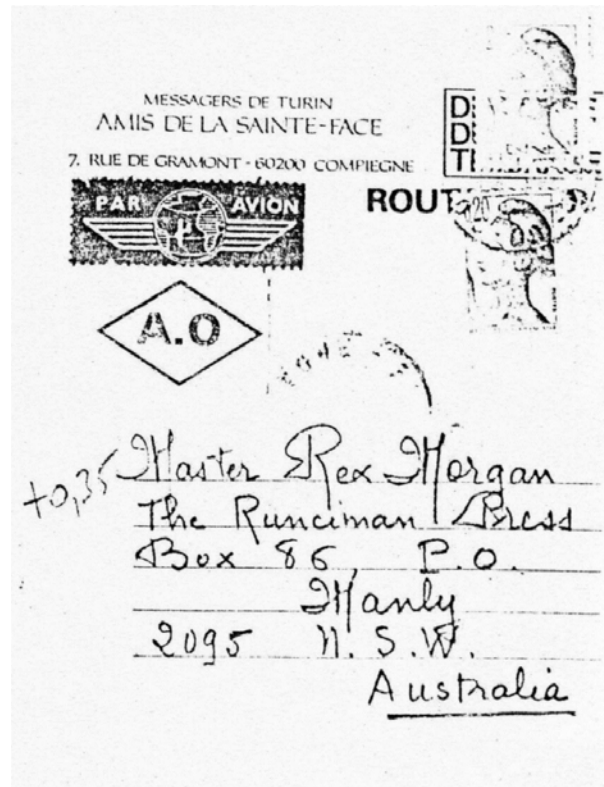 MESSAGERS DE TURIN
AMIS DE LA SAINTE-FACE
7, RUE DE GRAMONT - 60200 COMPIEGNE
PAR AVION
A.O
+0,35
Master Rex Morgan
The Runciman Press
Box 86, P.O.
Manly
2095 N.S.W.
Australia